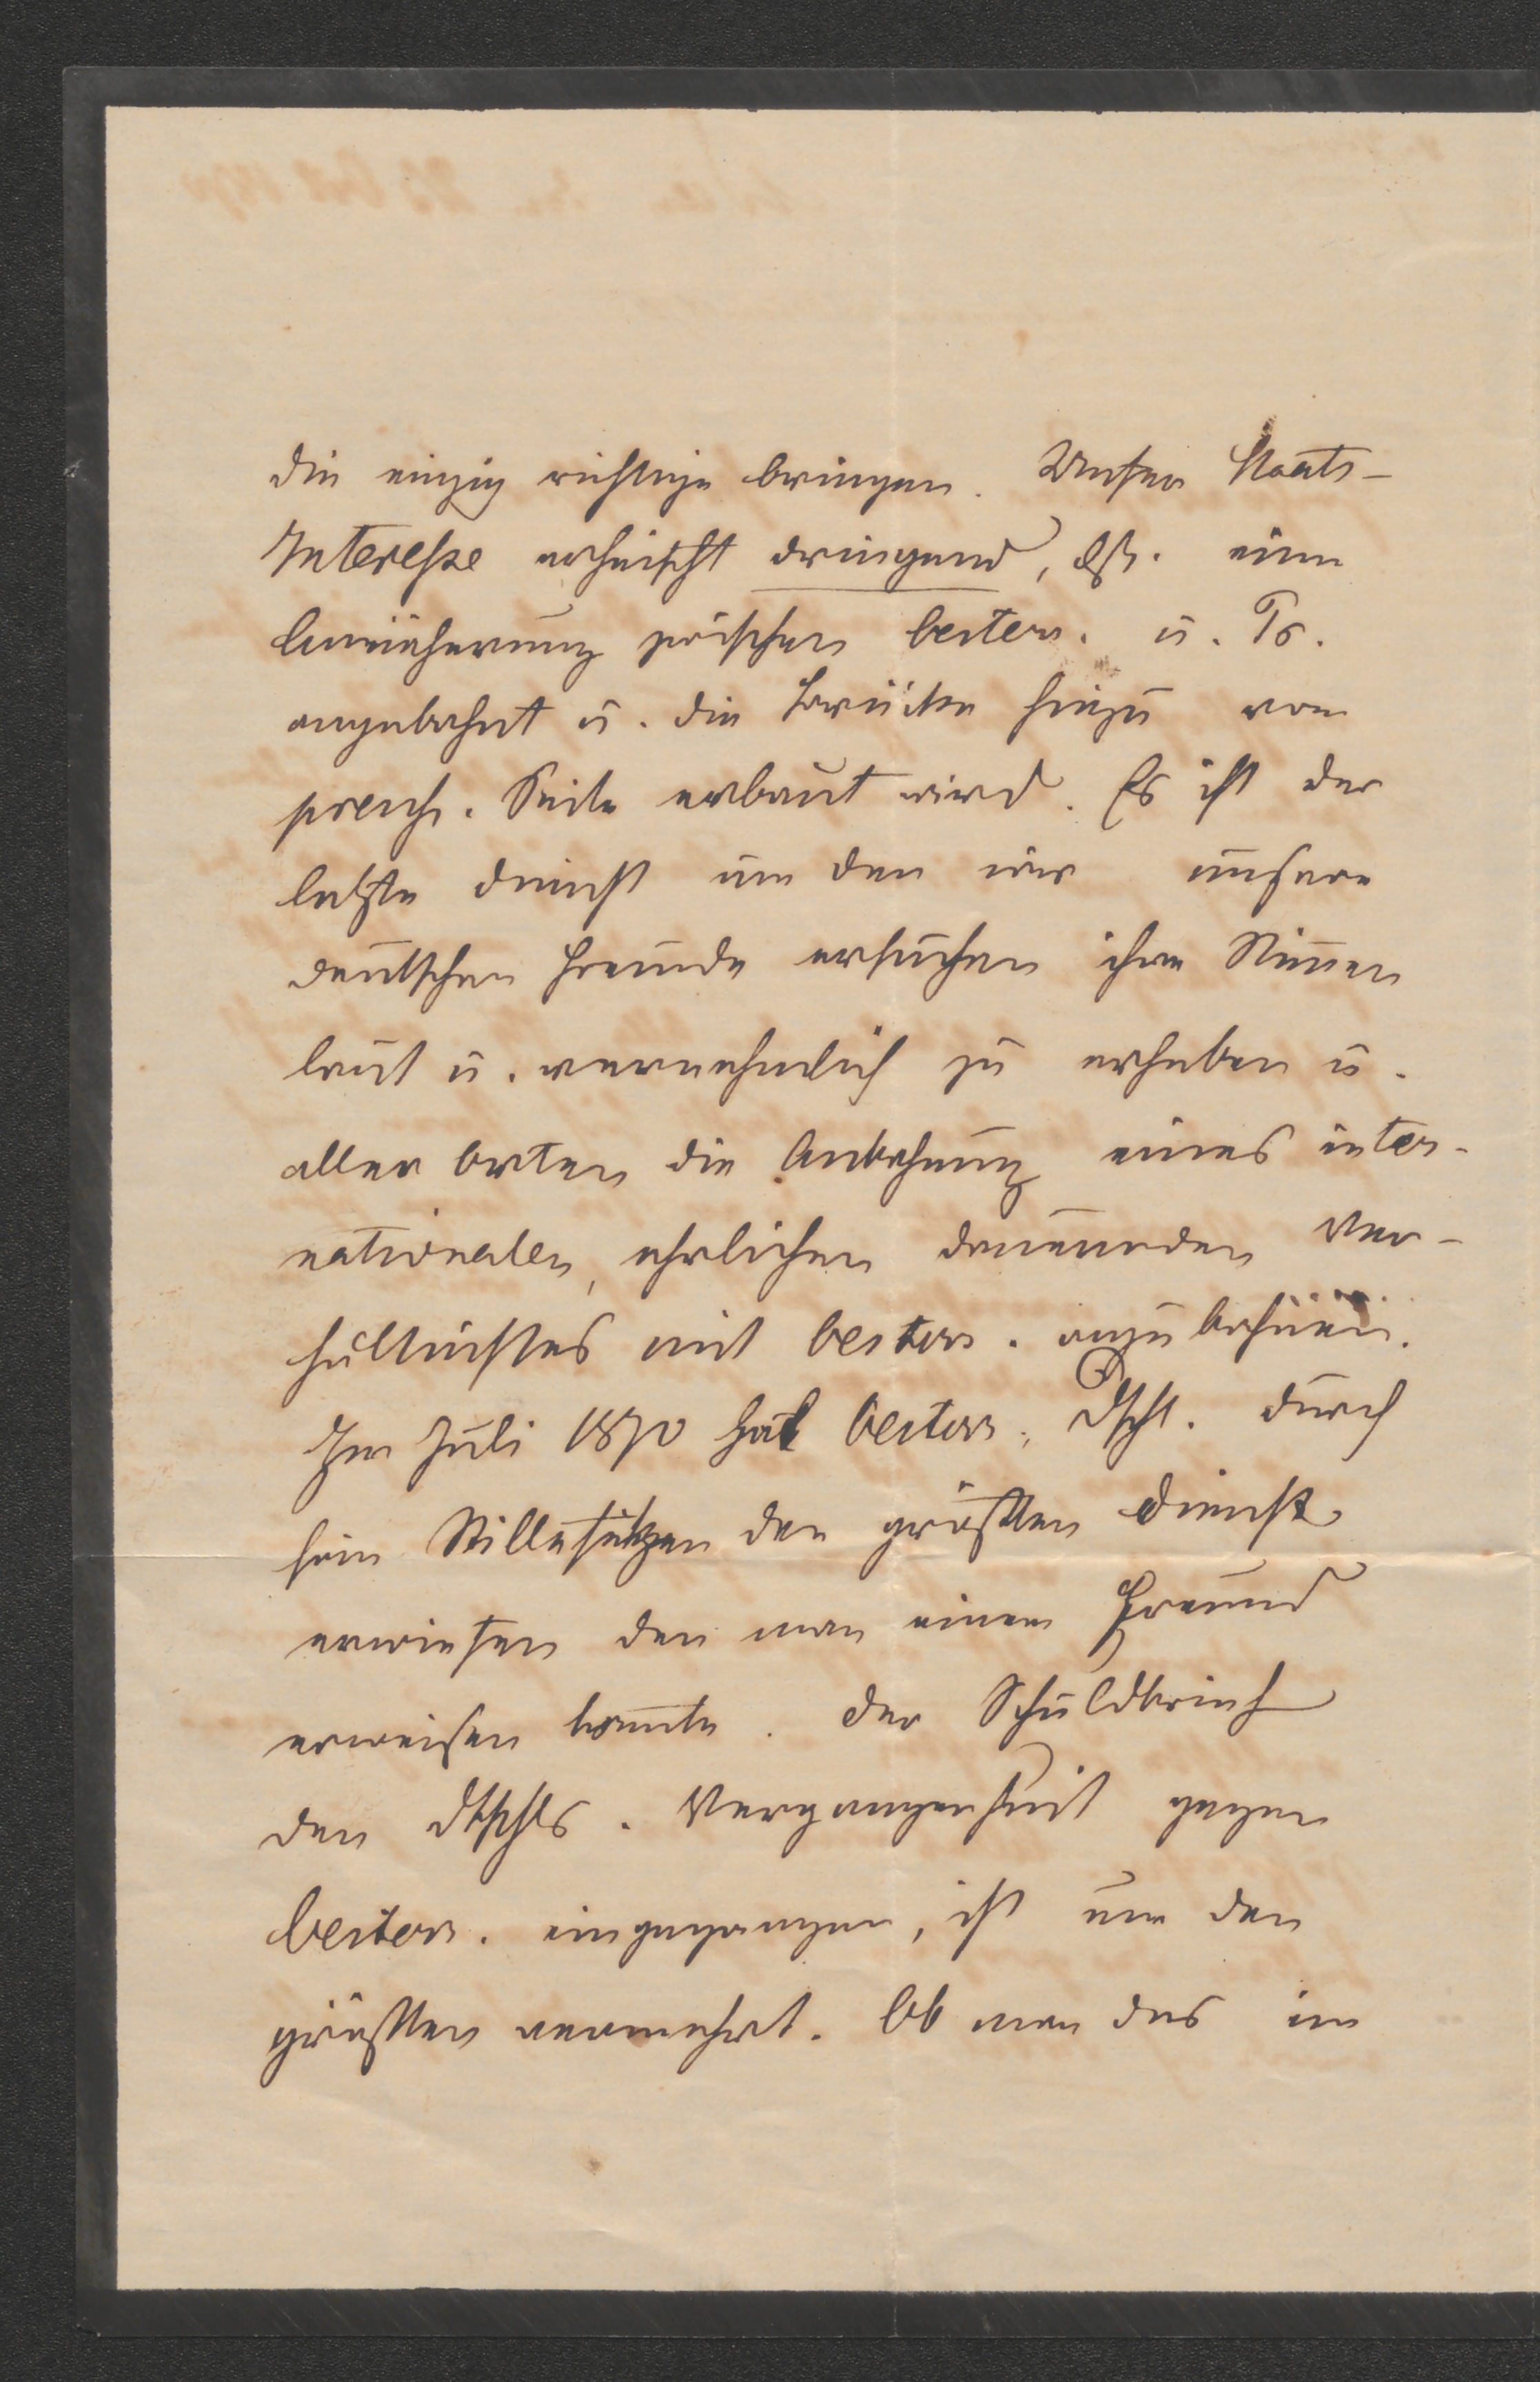 die einzig richtige bringen. Unser Staats-
Interesse erheischt dringend, dß. eine
Annäherung zwischen Oesterr. u. Pr.
angebahnt u. die Brücke hiezu von
preuß. Seite erbaut wird. Es ist der
letzte Dienst um den wir unsere
deutschen Freunde ersuchen ihre Stimmen
laut u. vernehmlich zu erheben u.
aller Orten die Anbahnung eines inter-
nationalen, ehrlichen dauernden Ver-
hältnisses mit Oesterr. anzubahnen.
Im Juli 1870 hat Oesterr. Dtschl. durch
sein Stillesitzen den größten Dienst
erwiesen den man einem Freund
erweisen konnte. Der Schuldbrief
den Dtschls. Vergangenheit gegen
Oesterr. eingegangen, ist um den
größten vermehrt. Ob man das im